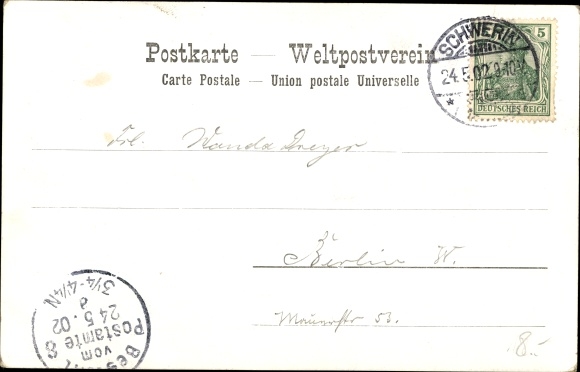 Postkarte — Weltpostverein
Carte Postale — Union postale Universelle
SCHWERIN
24.5.02.9-10V
5
DEUTSCHES REICH
Frl. Wanda Dreyer
Berlin W.
Mauerstr 53.
Bestellt
vom
Postamte 8
24.5.02
3¼-4¼N
8.-